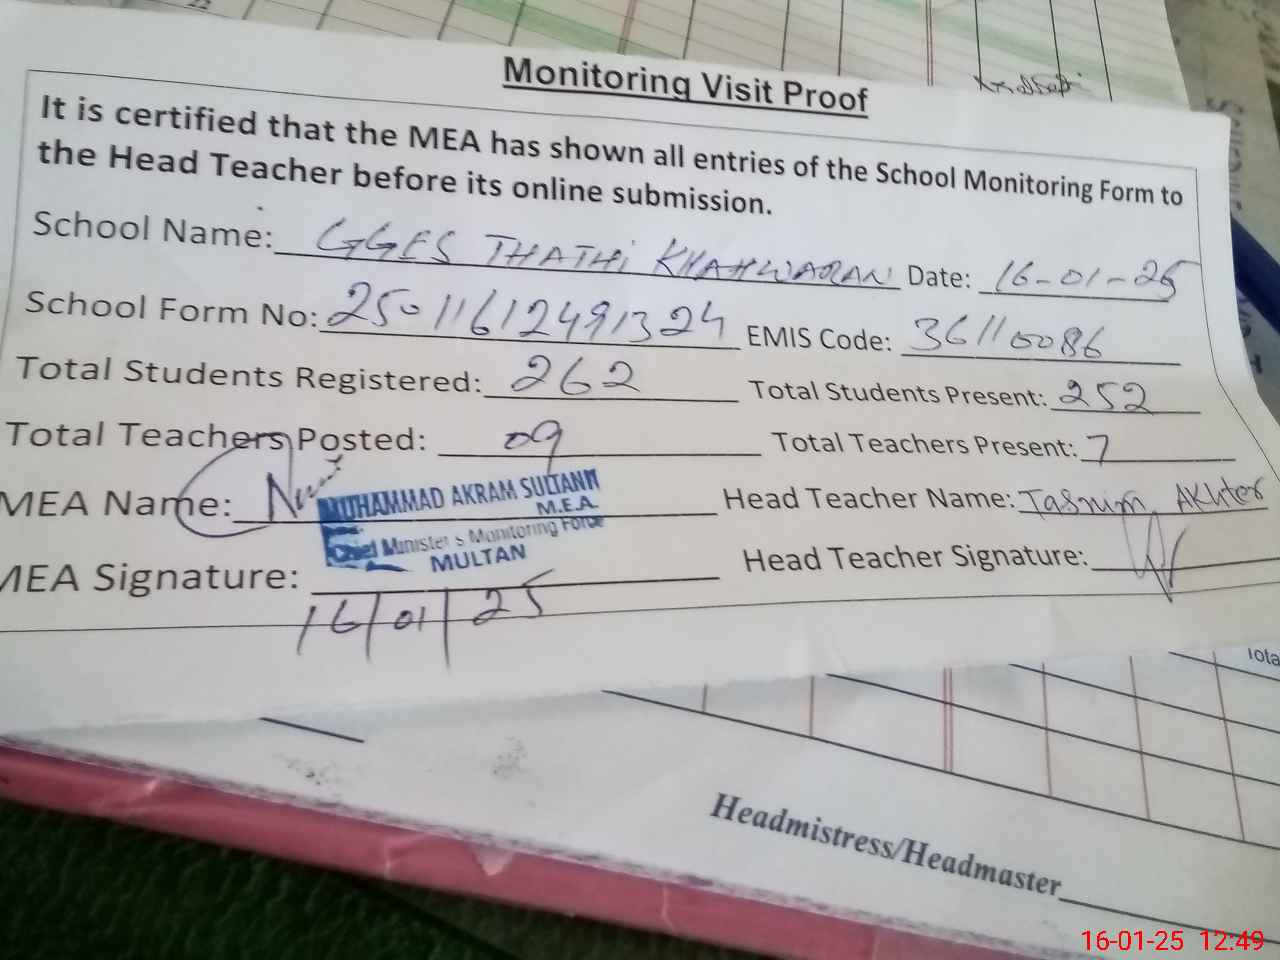 Monitoring Visit Proof
It is certified that the MEA has shown all entries of the School Monitoring Form to
the Head Teacher before its online submission.
School Name: GGES THATHI KHAHWARAN Date: 16-01-25
School Form No: 25011612491324 EMIS Code: 36110086
Total Students Registered: 262 Total Students Present: 252
Total Teachers Posted: 09 Total Teachers Present: 7
MEA Name: MUHAMMAD AKRAM SULTANI Head Teacher Name: Tasnim AKhter
M.E.A.
Chief Minister s Monitoring Force
MULTAN
MEA Signature: Head Teacher Signature:
16/01/25
Tota
Headmistress/Headmaster
16-01-25 12:49